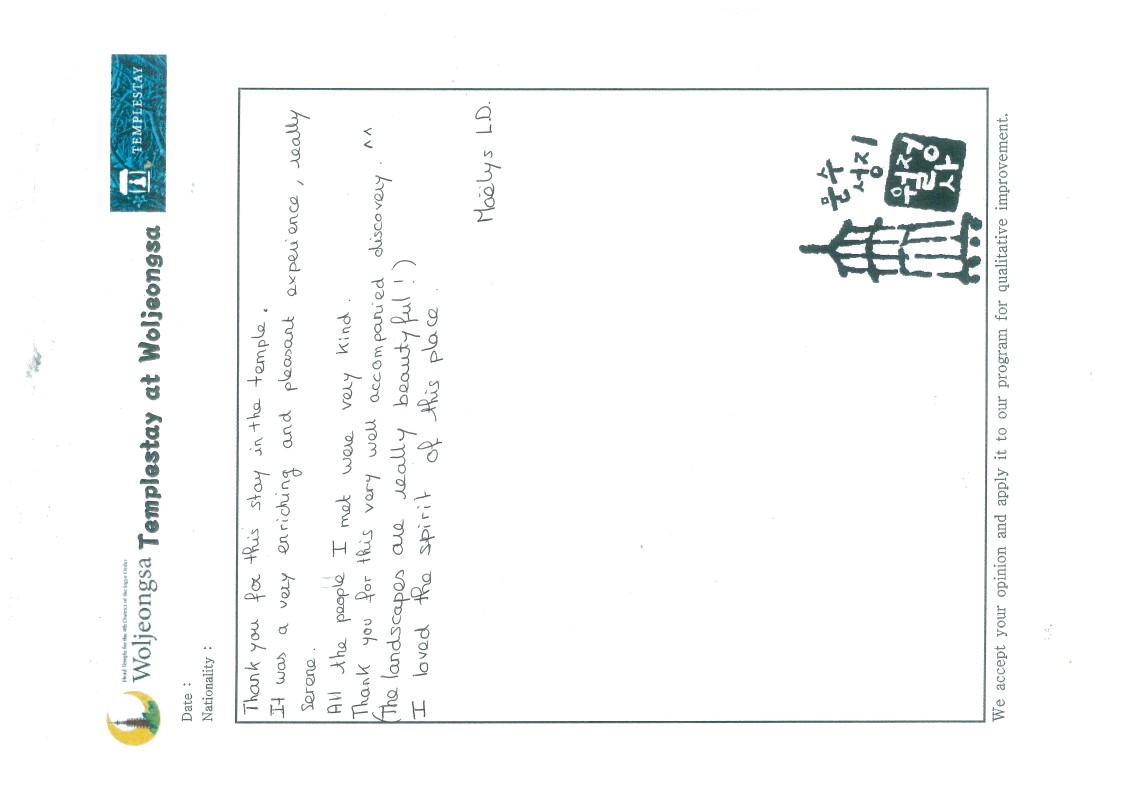 Head Temple for the 4th District of the Jogye Order
Woljeongsa Templestay at Woljeongsa
TEMPLESTAY
Date :
Nationality :
Thank you for this stay in the temple.
It was a very enriching and pleasant experience, really
serene.
All the people I met were very kind.
Thank you for this very well accompanied discovery. ^^
(The landscapes are really beautyful!)
I loved the spirit of this place.
Maëlys L.D.
문수
성지
월정
사
We accept your opinion and apply it to our program for qualitative improvement.